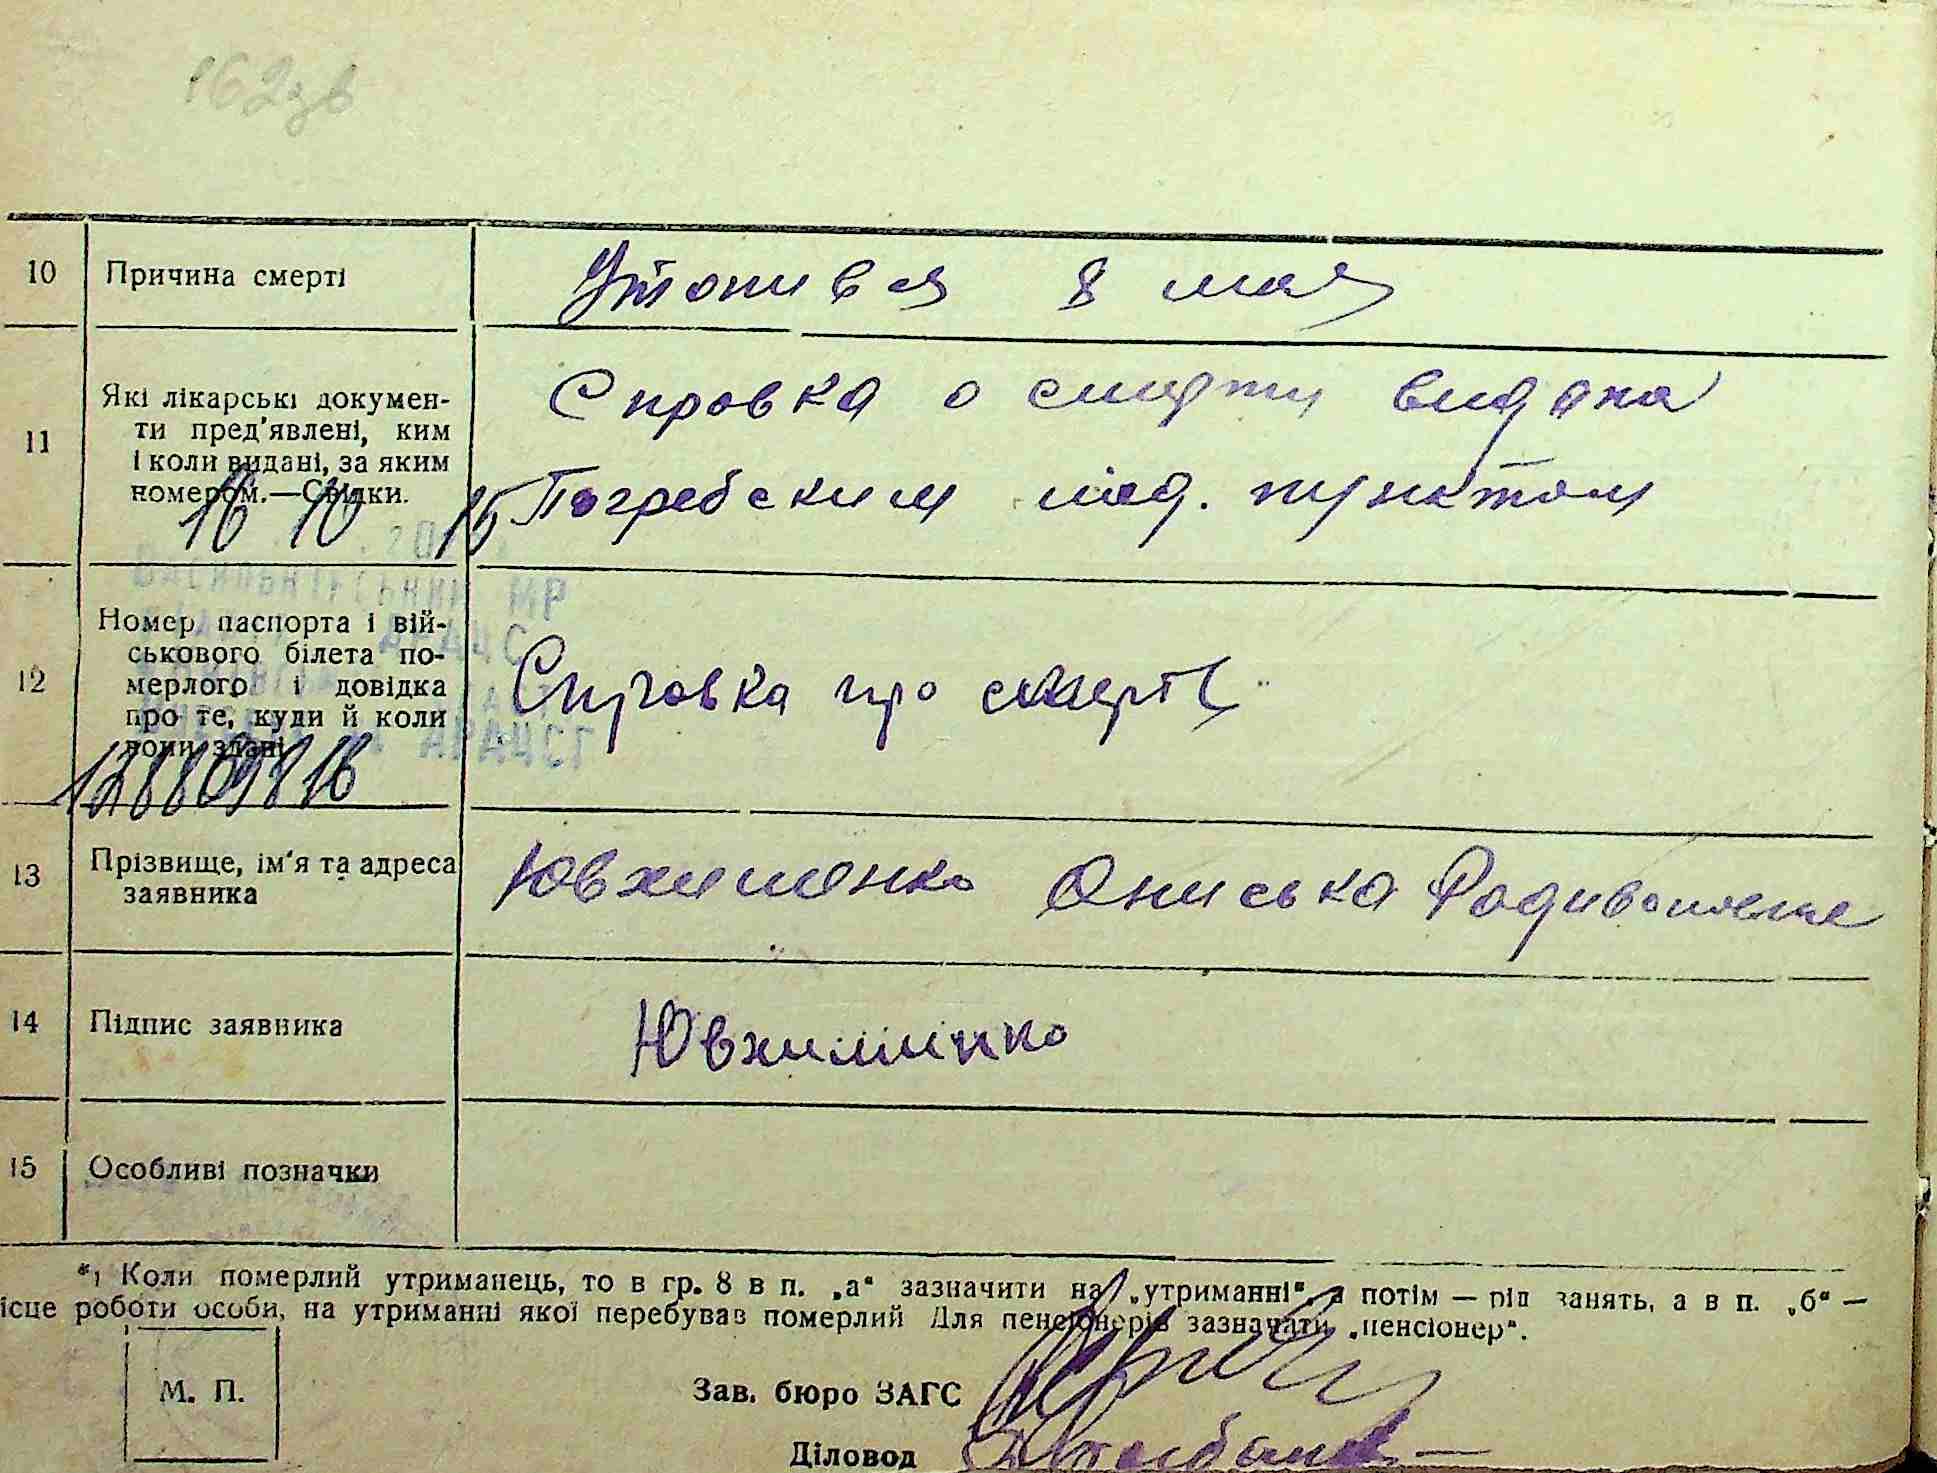 162зв
10 Причина смерті Утопився 8 мая
11 Які лікарські докумен-
ти пред'явлені, ким
і коли видані, за яким
номером.—Свідки.
Справка о смерти видана
Погребским мед. пунктом
16 10 15
МР
ДРАЦС
12 Номер паспорта і вій-
ськового білета по-
мерлого і довідка
про те, куди й коли
вони здані
Справка про смерть
ДРАЦСГ
13 Прізвище, ім'я та адреса
заявника
Ювхименко Ониська Родивоновна
14 Підпис заявника Ювхименко
15 Особливі позначки
*) Коли померлий утриманець, то в гр. 8 в п. „а“ зазначити на „утриманні“, а потім — під занять, а в п. „б“ —
ісце роботи особи, на утриманні якої перебував померлий Для пенсіонерів зазначати „пенсіонер“.
М. П.
Зав. бюро ЗАГС
Діловод